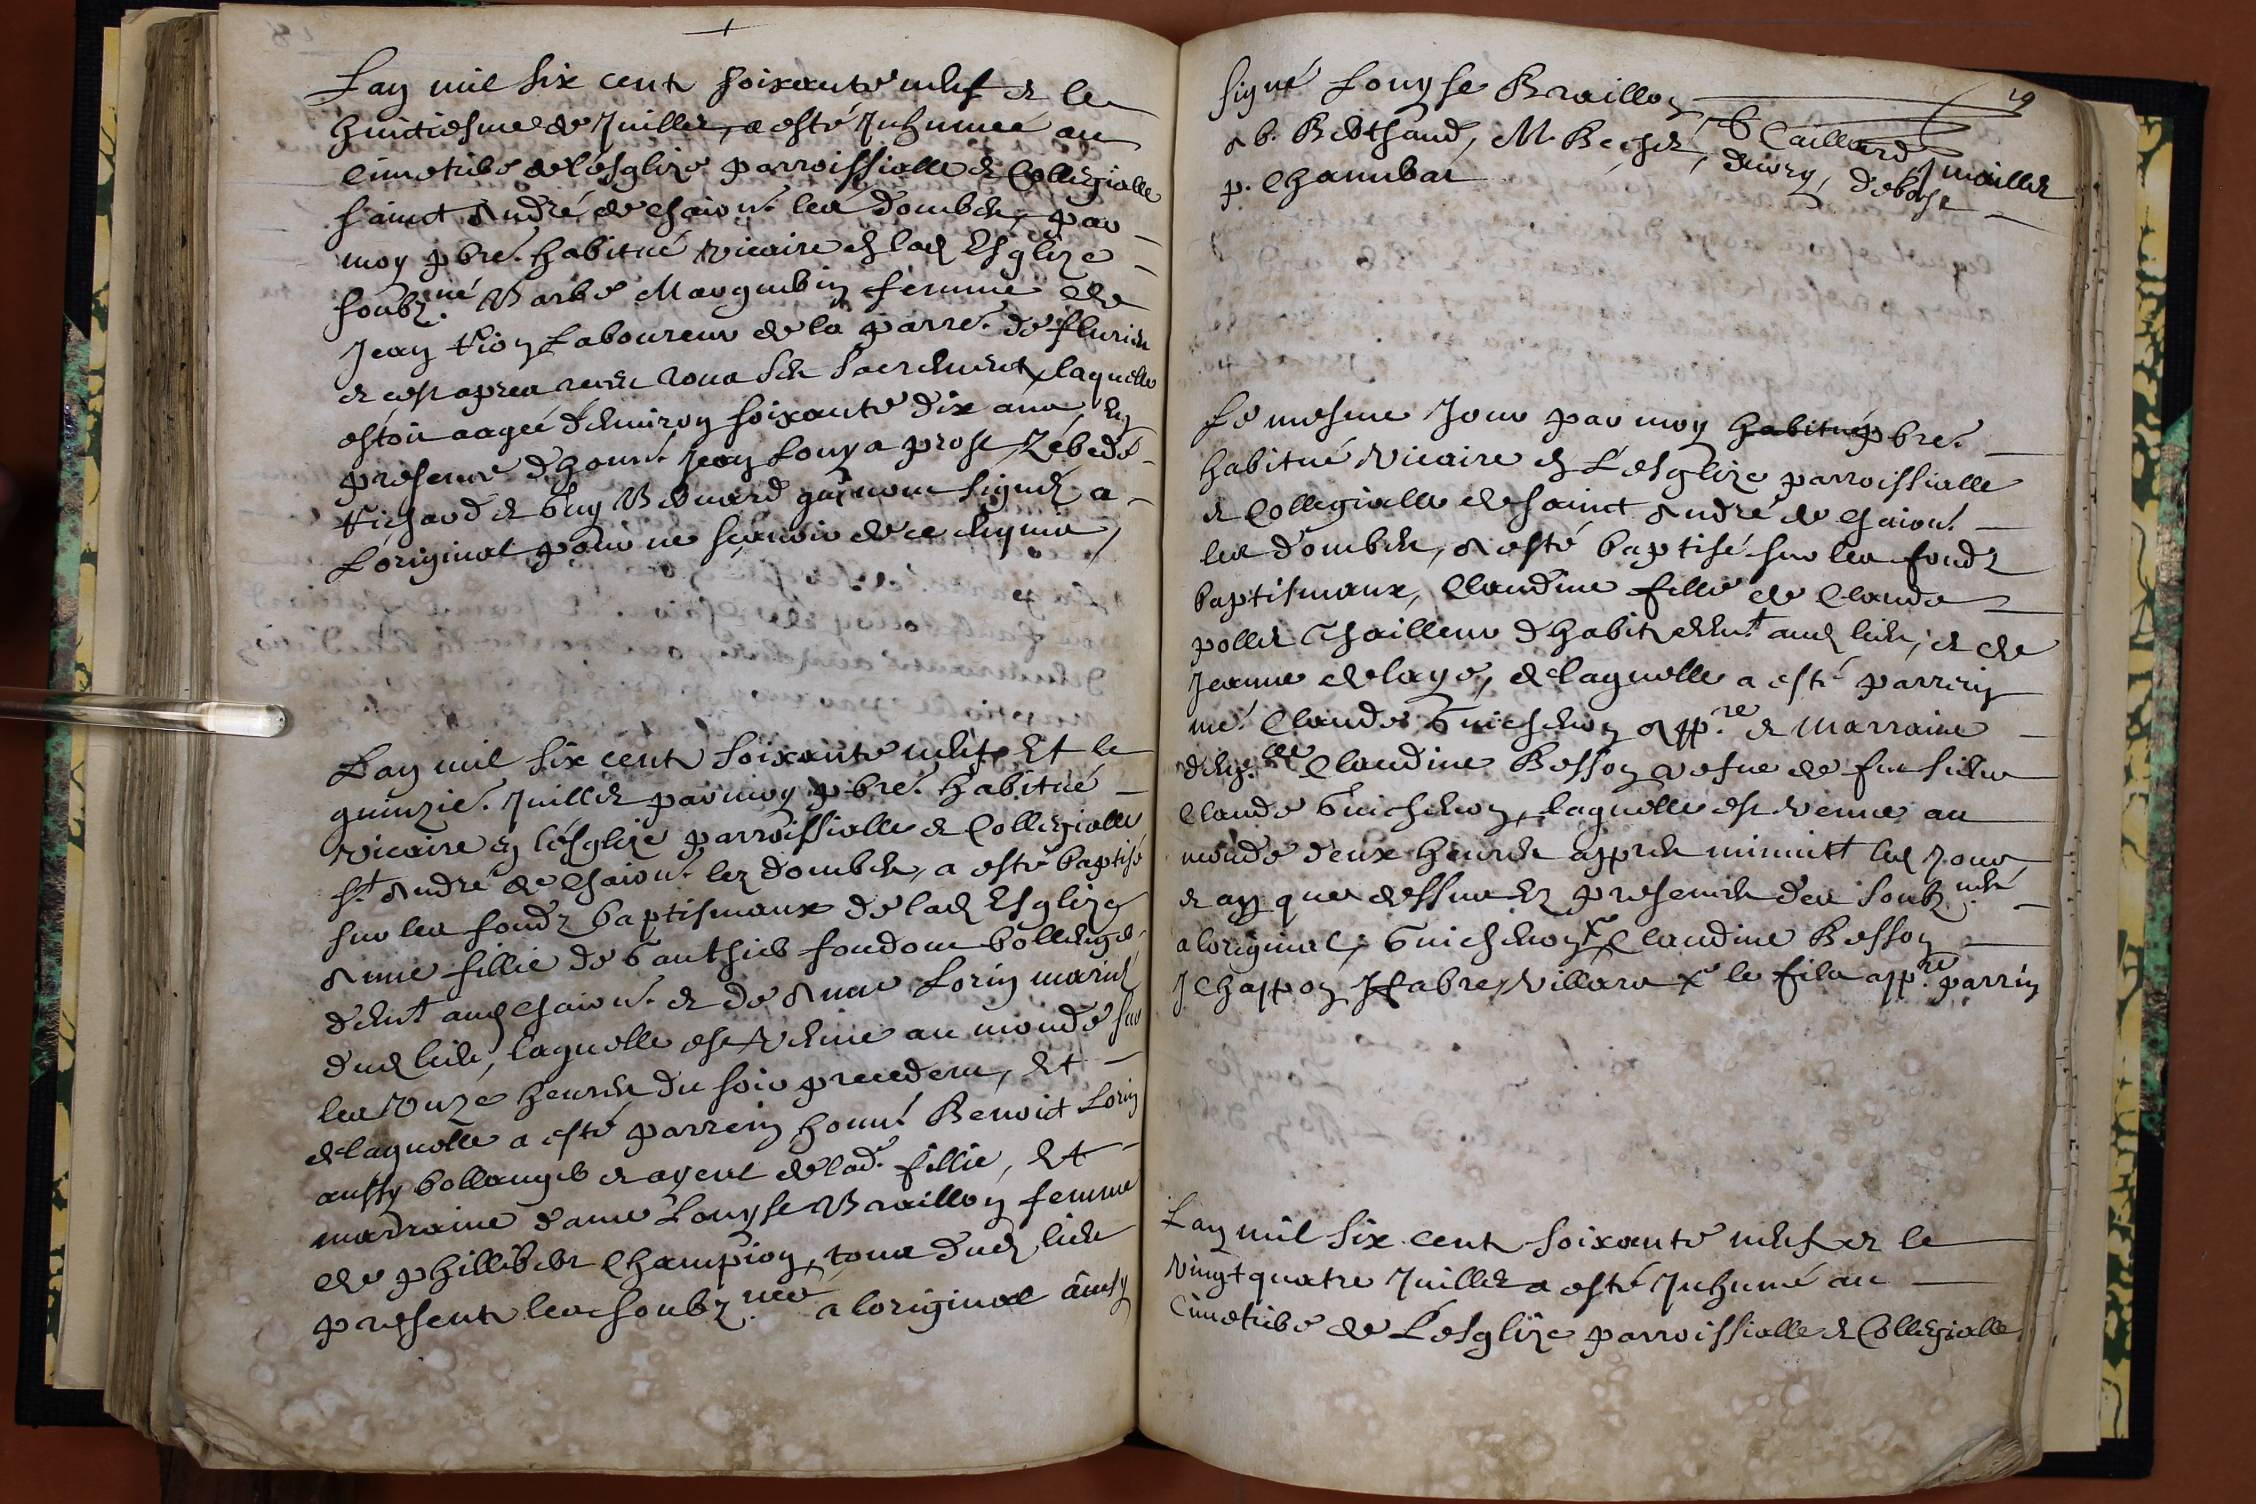 Lan mil six cent soixante neuf et le
huictiesme de Juillet, a esté Inhumée au
Cimetiere de l'esglize parroissialle et Collegialle
sainct André de chaion.t les dombes, par
moy pbre. habitué vicaire en lad Esglize
soubz.né Barbe Marguebin femme de
Jean Fion Laboureur de la parre. de flurieu
et ce apres receu tous ses sacrements, laquelle
estoit aagée d'environ soixante dix ans, en
presence d'honn.t Jean Louys prost, Zébedé
Richard et Guy Benard qui nont signez a
L'original pour ne sçavoir de ce enquis,
Lan mil six cent soixante neuf Et le
quinzie. Juillet par moy pbre. habitué
vicaire en lésglize parroissialle et Collegialle
st André de chaion.t lez dombes, a esté baptisé
sur les fondz baptismaux de lad Esglize
Anne fillie de Gauthier foudon bollenger
dem.t aud chaion.t et de Anne Lorin mariez
dud lieu, laquelle est venue au monde sur
les Onze heures du soir precedent, Et
de laquelle a esté parrein honn.t Benoict Lorin
aussy bollanger et ayeul de lad. fillie, Et
marraine dame Louyse Braillon femme
de phillibert Champion, tous dud lieu
presents les soubz.nes a loriginal ainsy
19
signé Louyse Braillon G Caillard
A b. Berthaud, M. Bechet, deury, debost J maillet
p. Chambar
Le mesme Jour par moy habitué pbre.
habitué vicaire en L'esglize parroissialle
et Collegialle de sainct André de chaion.t
les dombes, A esté baptisé sur les fondz
baptismaux, Claudine fille de Claude
pollet Thailleur d'habitz dem.t aud lieu, et de
Jeanne delaye, de laquelle a esté parrein
me. Claude Guichenon app.re et Marraine
dem.lle Claudine Besson vefue de feu sieur
Claude Guichenon, laquelle est venue au
monde deux heures appres minuict led Jour
et an que dessus En presence des soubz.nés
a loriginal, Guichenon Claudine Besson
J Chappon J fabre, Villars le fils app.re parrin
Lan mil six cent soixante neuf et le
vingt quatre Juillet a esté Inhumé au
Cimetiere de L'esglize parroissialle et Collegialle